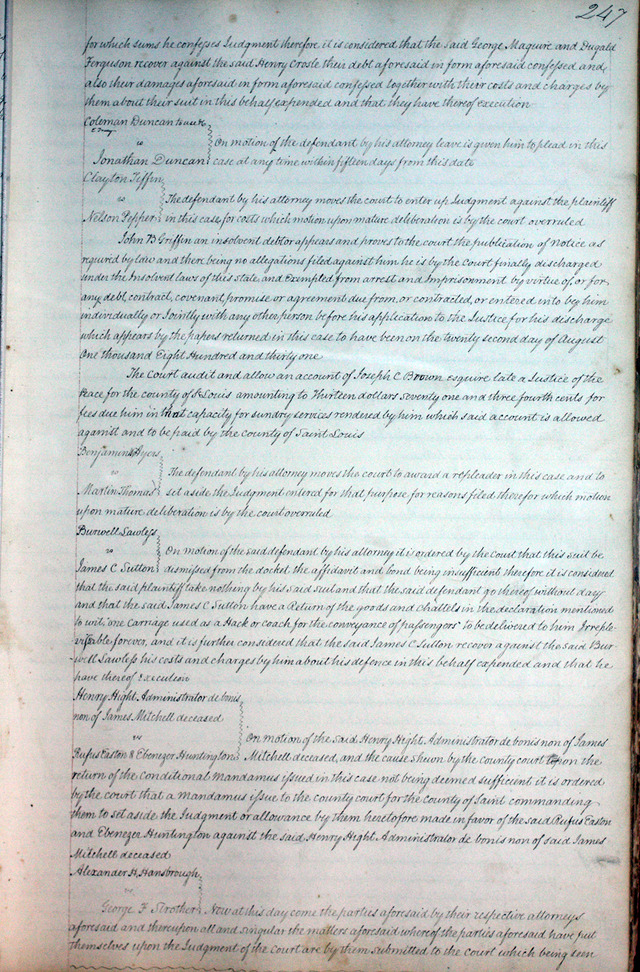 247
for which sums he confesses Judgment therefore it is considered that the said George Maguire and Dugald
Ferguson recover against the said Henry Crosle their debt aforesaid in form aforesaid confessed and
also their damages aforesaid in form aforesaid confessed together with their costs and charges by
them about their suit in this behalf expended and that they have thereof execution
Coleman Duncan
vs On motion of the defendant by his attorney leave is given him to plead in this
Jonathan Duncan case at any time within fifteen days from this date
Clayton Tiffin
vs The defendant by his attorney moves the court to enter up Judgment against the plaintiff
Nelson Pepper in this case for costs which motion upon mature deliberation is by the court overruled
John B Griffin an insolvent debtor appears and proves to the court the publication of notice as
required by law and there being no allegations filed against him he is by the Court finally discharged
under the Insolvent laws of this State and Exempted from arrest and Imprisonment by virtue of, or for
any debt, contract, covenant, promise or agreement due from, or contracted, or entered into by him
individually or Jointly with any other person before his application to the Justice for his discharge
which appears by the papers returned in this case to have been on the twenty second day of August
One thousand Eight Hundred and thirty one
The Court audit and allow an account of Joseph C Brown esquire late a Justice of the
Peace for the county of St Louis amounting to Thirteen dollars Seventy one and three fourth cents for
fees due him in that capacity for sundry services rendered by him which said account is allowed
against and to be paid by the County of Saint Louis
Benjamin Ayers
vs The defendant by his attorney moves the court to award a repleader in this case and to
Martin Thomas set aside the Judgment entered for that purpose for reasons filed therefor which motion
upon mature deliberation is by the court overruled
Burwell Lawless
vs On motion of the said defendant by his attorney it is ordered by the Court that this suit be
James C Sutton dismissed from the docket the affidavit and bond being insufficient therefore it is considered
that the said plaintiff take nothing by his said suit and that the said defendant go thereof without day
and that the said James C Sutton have a Return of the goods and chattels in the declaration mentioned
to wit; one Carriage used as a Hack or coach for the conveyance of passengers to be delivered to him Irreple-
visable forever, and it is further considered that the said James C Sutton recover against the said Bur-
well Lawless his costs and charges by him about his defence in this behalf expended and that he
have thereof Execution
Henry Hight Administrator de bonis
non of James Mitchell deceased
vs On motion of the said Henry Hight Administrator de bonis non of James
Rufus Easton & Ebenezer Huntington Mitchell deceased, and the cause shewn by the county court upon the
return of the conditional Mandamus issued in this case not being deemed sufficient it is ordered
by the court that a Mandamus issue to the county court for the County of Saint commanding
them to set aside the Judgment or allowance by them heretofore made in favor of the said Rufus Easton
and Ebenezer Huntington against the said Henry Hight Administrator de bonis non of said James
Mitchell deceased
Alexander H Hansbrough
vs
George F Strother Now at this day come the parties aforesaid by their respective attorneys
aforesaid and thereupon all and singular the matters aforesaid whereof the parties aforesaid have put
themselves upon the Judgment of the Court are by them submitted to the Court which being seen